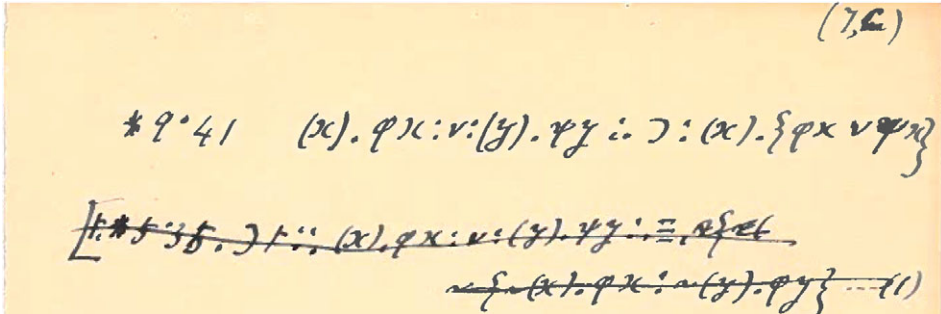 (7,
*9·41 (x). φx :v: (y). ψy :. ⊃ : (x). {φx v ψx}
[⊢.*5·35. ⊃ ⊢ :. (x). φx :v: (y). ψy :. ≡
~{~(x). φx : ~(y). φy} ---- (1)